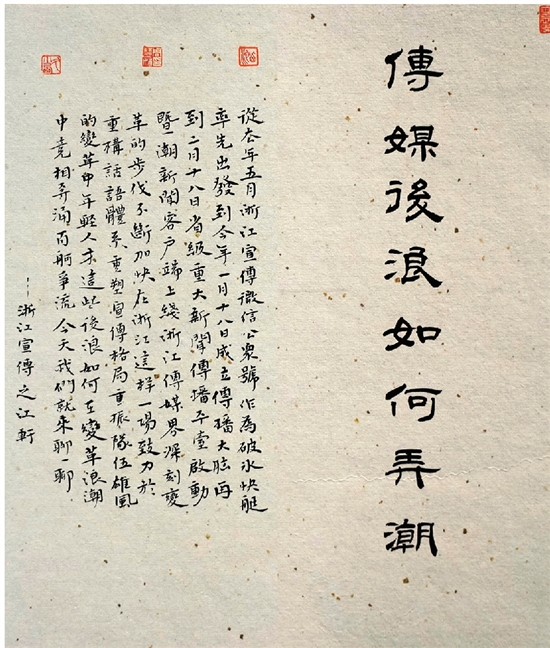 傳媒後浪如何弄潮
從去年五月浙江宣傳微信公眾號作為破冰快艇
率先出發到今年一月十八日成立傳播大腦再
到二月十八日省級重大新聞傳播平臺啟動
暨潮新聞客户端上綫浙江傳媒界深刻變
革的步伐不斷加快在浙江這樣一場致力於
重構話語體系重塑宣傳格局重振隊伍雄風
的變革中年輕人才這些後浪如何在變革浪潮
中竞相奔涌百舸爭流今天我們就來聊一聊
——浙江宣傳之江軒